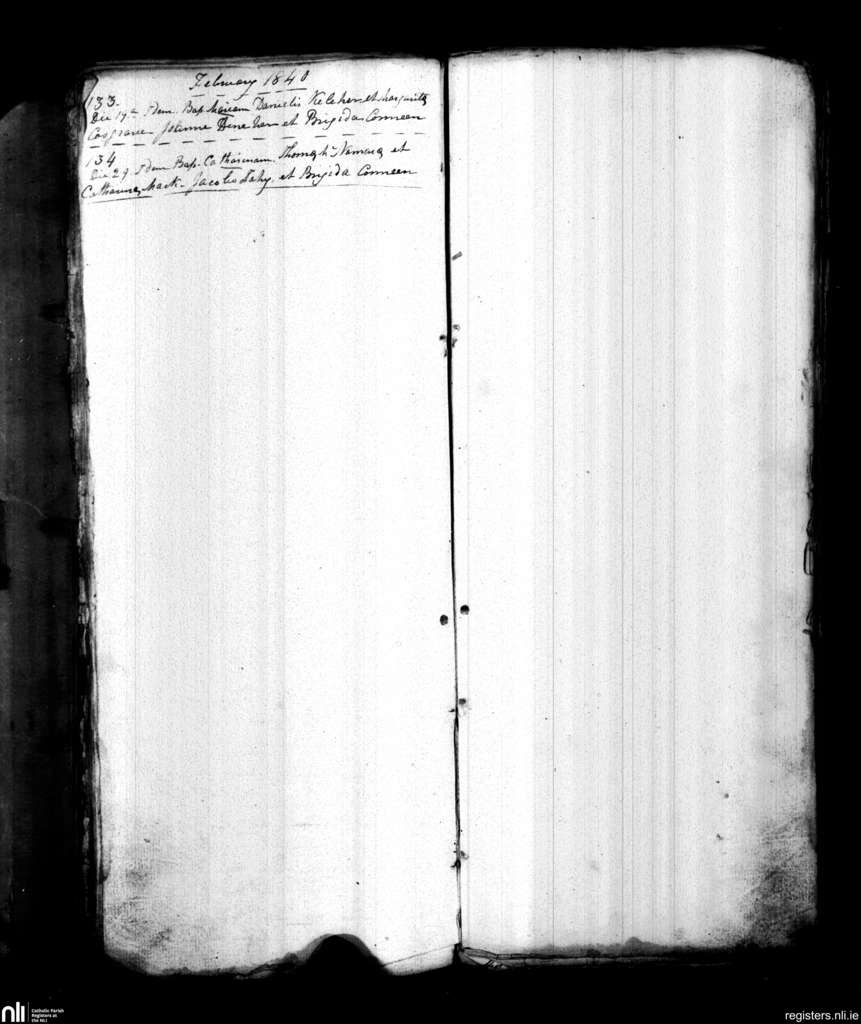 February 1840
133.
Die 17a Idem Bap. Mariam Danielis Kelehers et Margarita
Cosgrave - Joanne Dinehan et Brigida Conneen
134
Die 29 Idem Bap. Catharinam. Thoma McNamara et
Catharina Mack - Jacobo Lahy et Brigida Conneen
nli
Catholic Parish
Registers at
the NLI
registers.nli.ie